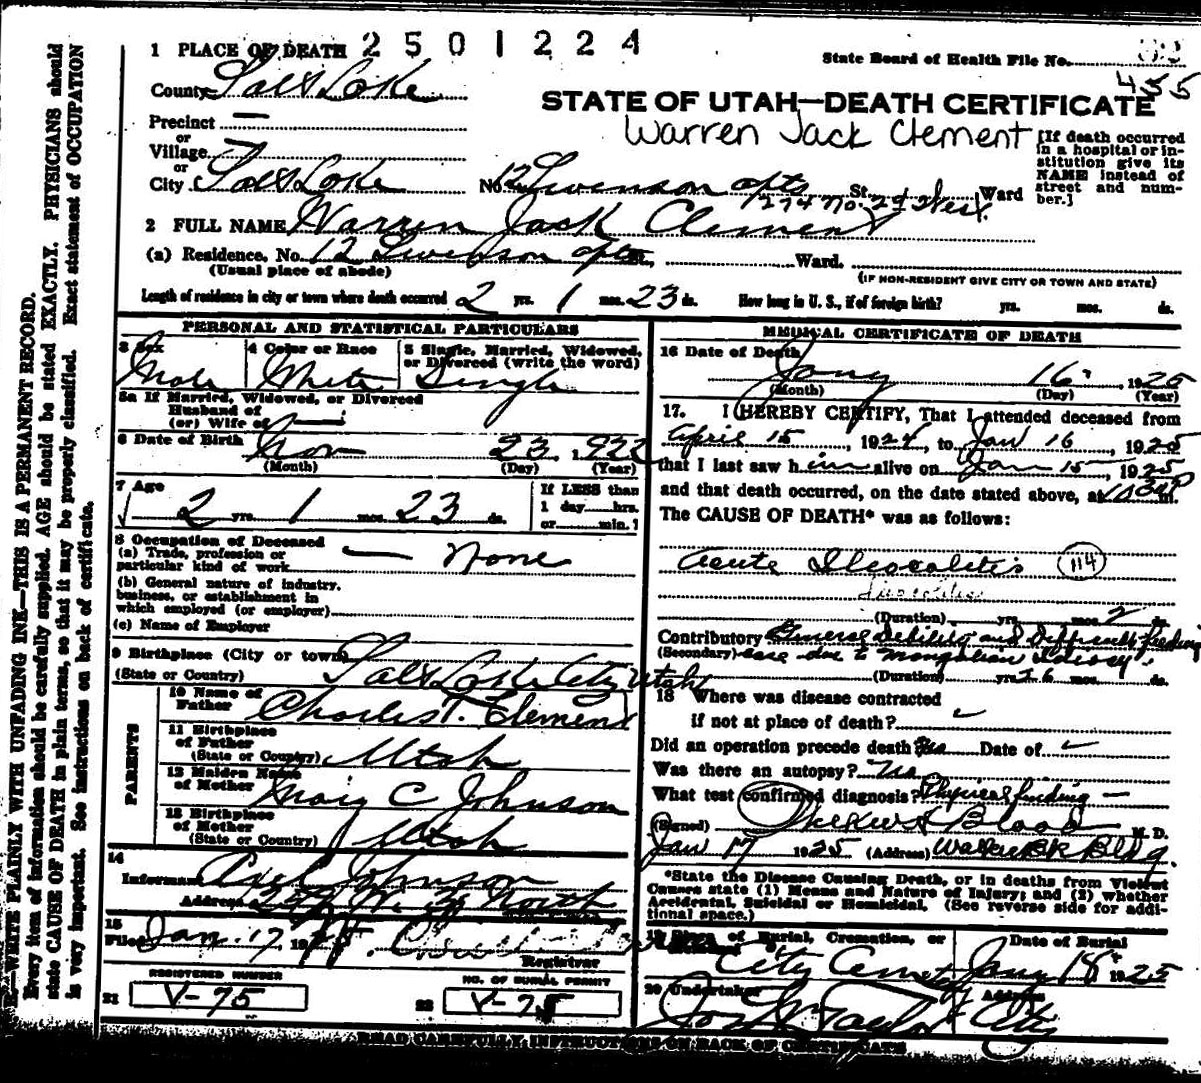 1 PLACE OF DEATH 2501224
State Board of Health File No.
455
County Salt Lake
STATE OF UTAH—DEATH CERTIFICATE
Warren Jack Clement
Precinct —
or
Village —
or
City Salt Lake No. 12 Swenson apts St. Ward
1274 No. 2d West
[If death occurred
in a hospital or in-
stitution give its
NAME instead of
street and num-
ber.]
2 FULL NAME Warren Jack Clement
(a) Residence. No. 12 Swenson apts St., Ward.
(Usual place of abode)
(IF NON-RESIDENT GIVE CITY OR TOWN AND STATE)
Length of residence in city or town where death occurred 2 yrs. 1 mos. 23 ds. How long in U. S., if of foreign birth? yrs. mos. ds.
PERSONAL AND STATISTICAL PARTICULARS
3 Sex
Male
4 Color or Race
White
5 Single, Married, Widowed,
or Divorced (write the word)
Single
5a If Married, Widowed, or Divorced
Husband of
(or) Wife of —
6 Date of Birth Nov 23, 1922
(Month) (Day) (Year)
7 Age
2 yrs. 1 mos. 23 ds.
If LESS than
1 day hrs.
or min.?
8 Occupation of Deceased
(a) Trade, profession or
particular kind of work — None
(b) General nature of industry,
business, or establishment in
which employed (or employer)
(c) Name of Employer
9 Birthplace (City or town)
(State or Country) Salt Lake City Utah
PARENTS
10 Name of
Father Charles T. Clement
11 Birthplace
of Father
(State or Country) Utah
12 Maiden Name
of Mother Mary C Johnson
13 Birthplace
of Mother
(State or Country) Utah
14
Informant Axel Johnson
Address W. North
15
Filed Jan. 17, 19
Registrar
REGISTERED NUMBER
21 V-75
NO. OF BURIAL PERMIT
22 V-75
MEDICAL CERTIFICATE OF DEATH
16 Date of Death
Jany 16, 1925
(Month) (Day) (Year)
17. I HEREBY CERTIFY, That I attended deceased from
April 15, 1924, to Jan 16, 1925
that I last saw him alive on Jan 15, 1925
and that death occurred, on the date stated above, at m.
The CAUSE OF DEATH* was as follows:
Acute Ileocolitis 114
(Duration) yrs. mos. 2 ds.
Contributory General debility and difficult feeding
(Secondary) case due to Mongolian Idiocy.
(Duration) yrs. mos. ds.
18 Where was disease contracted
if not at place of death? ✓
Did an operation precede death? No Date of ✓
Was there an autopsy? No
What test confirmed diagnosis? Physical finding —
(Signed) Blood M. D.
Jan 17 1925 (Address) Walker Bk Bldg.
*State the Disease Causing Death, or in deaths from Violent
Causes state (1) Means and Nature of Injury; and (2) whether
Accidental, Suicidal or Homicidal. (See reverse side for addi-
tional space.)
19 Place of Burial, Cremation, or
City Cemety
Date of Burial
Jany 18 1925
20 Undertaker
Taylor
Address
City
READ CAREFULLY INSTRUCTIONS ON BACK OF CERTIFICATE
WRITE PLAINLY WITH UNFADING INK—THIS IS A PERMANENT RECORD.
Every item of information should be carefully supplied. AGE should be stated EXACTLY. PHYSICIANS should
state CAUSE OF DEATH in plain terms, so that it may be properly classified. Exact statement of OCCUPATION
is very important. See instructions on back of certificate.